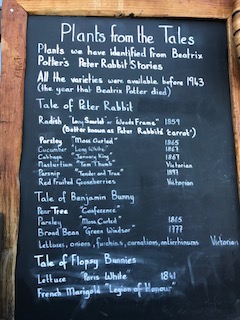 Plants from the Tales
Plants we have identified from Beatrix
Potter's Peter Rabbit Stories
All the varieties were available before 1943
(the year that Beatrix Potter died)
Tale of Peter Rabbit
Radish "Long Scarlet" or "Woods Frame" 1859
(Better known as Peter Rabbit's 'carrot')
Parsley "Moss Curled" 1865
Cucumber "Long White" 1867
Cabbage "January King" 1867
Nasturtium "Tom Thumb" Victorian
Parsnip "Tender and True" 1897
Red Fruited Gooseberries Victorian
Tale of Benjamin Bunny
Pear Tree "Conference"
Parsley "Moss Curled" 1865
Broad Bean "Green Windsor" 1777
Lettuces, onions, fuschias, carnations, antierhinums Victorian
Tale of Flopsy Bunnies
Lettuce "Paris White" 1841
French Marigold "Legion of Honour"